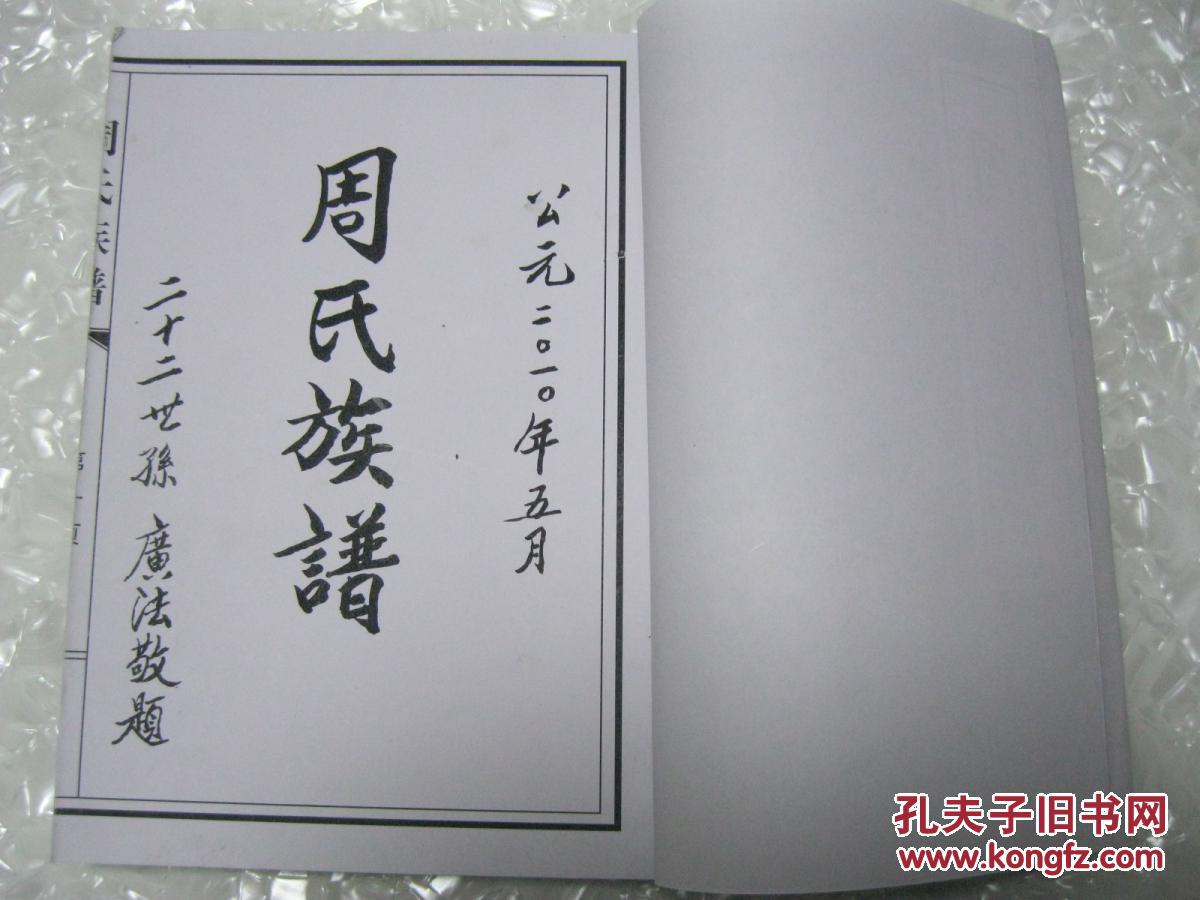 公元二〇一〇年五月
周氏族譜
二十二世孫 廣法敬題
周氏族譜
第一頁
孔夫子旧书网
www.kongfz.com